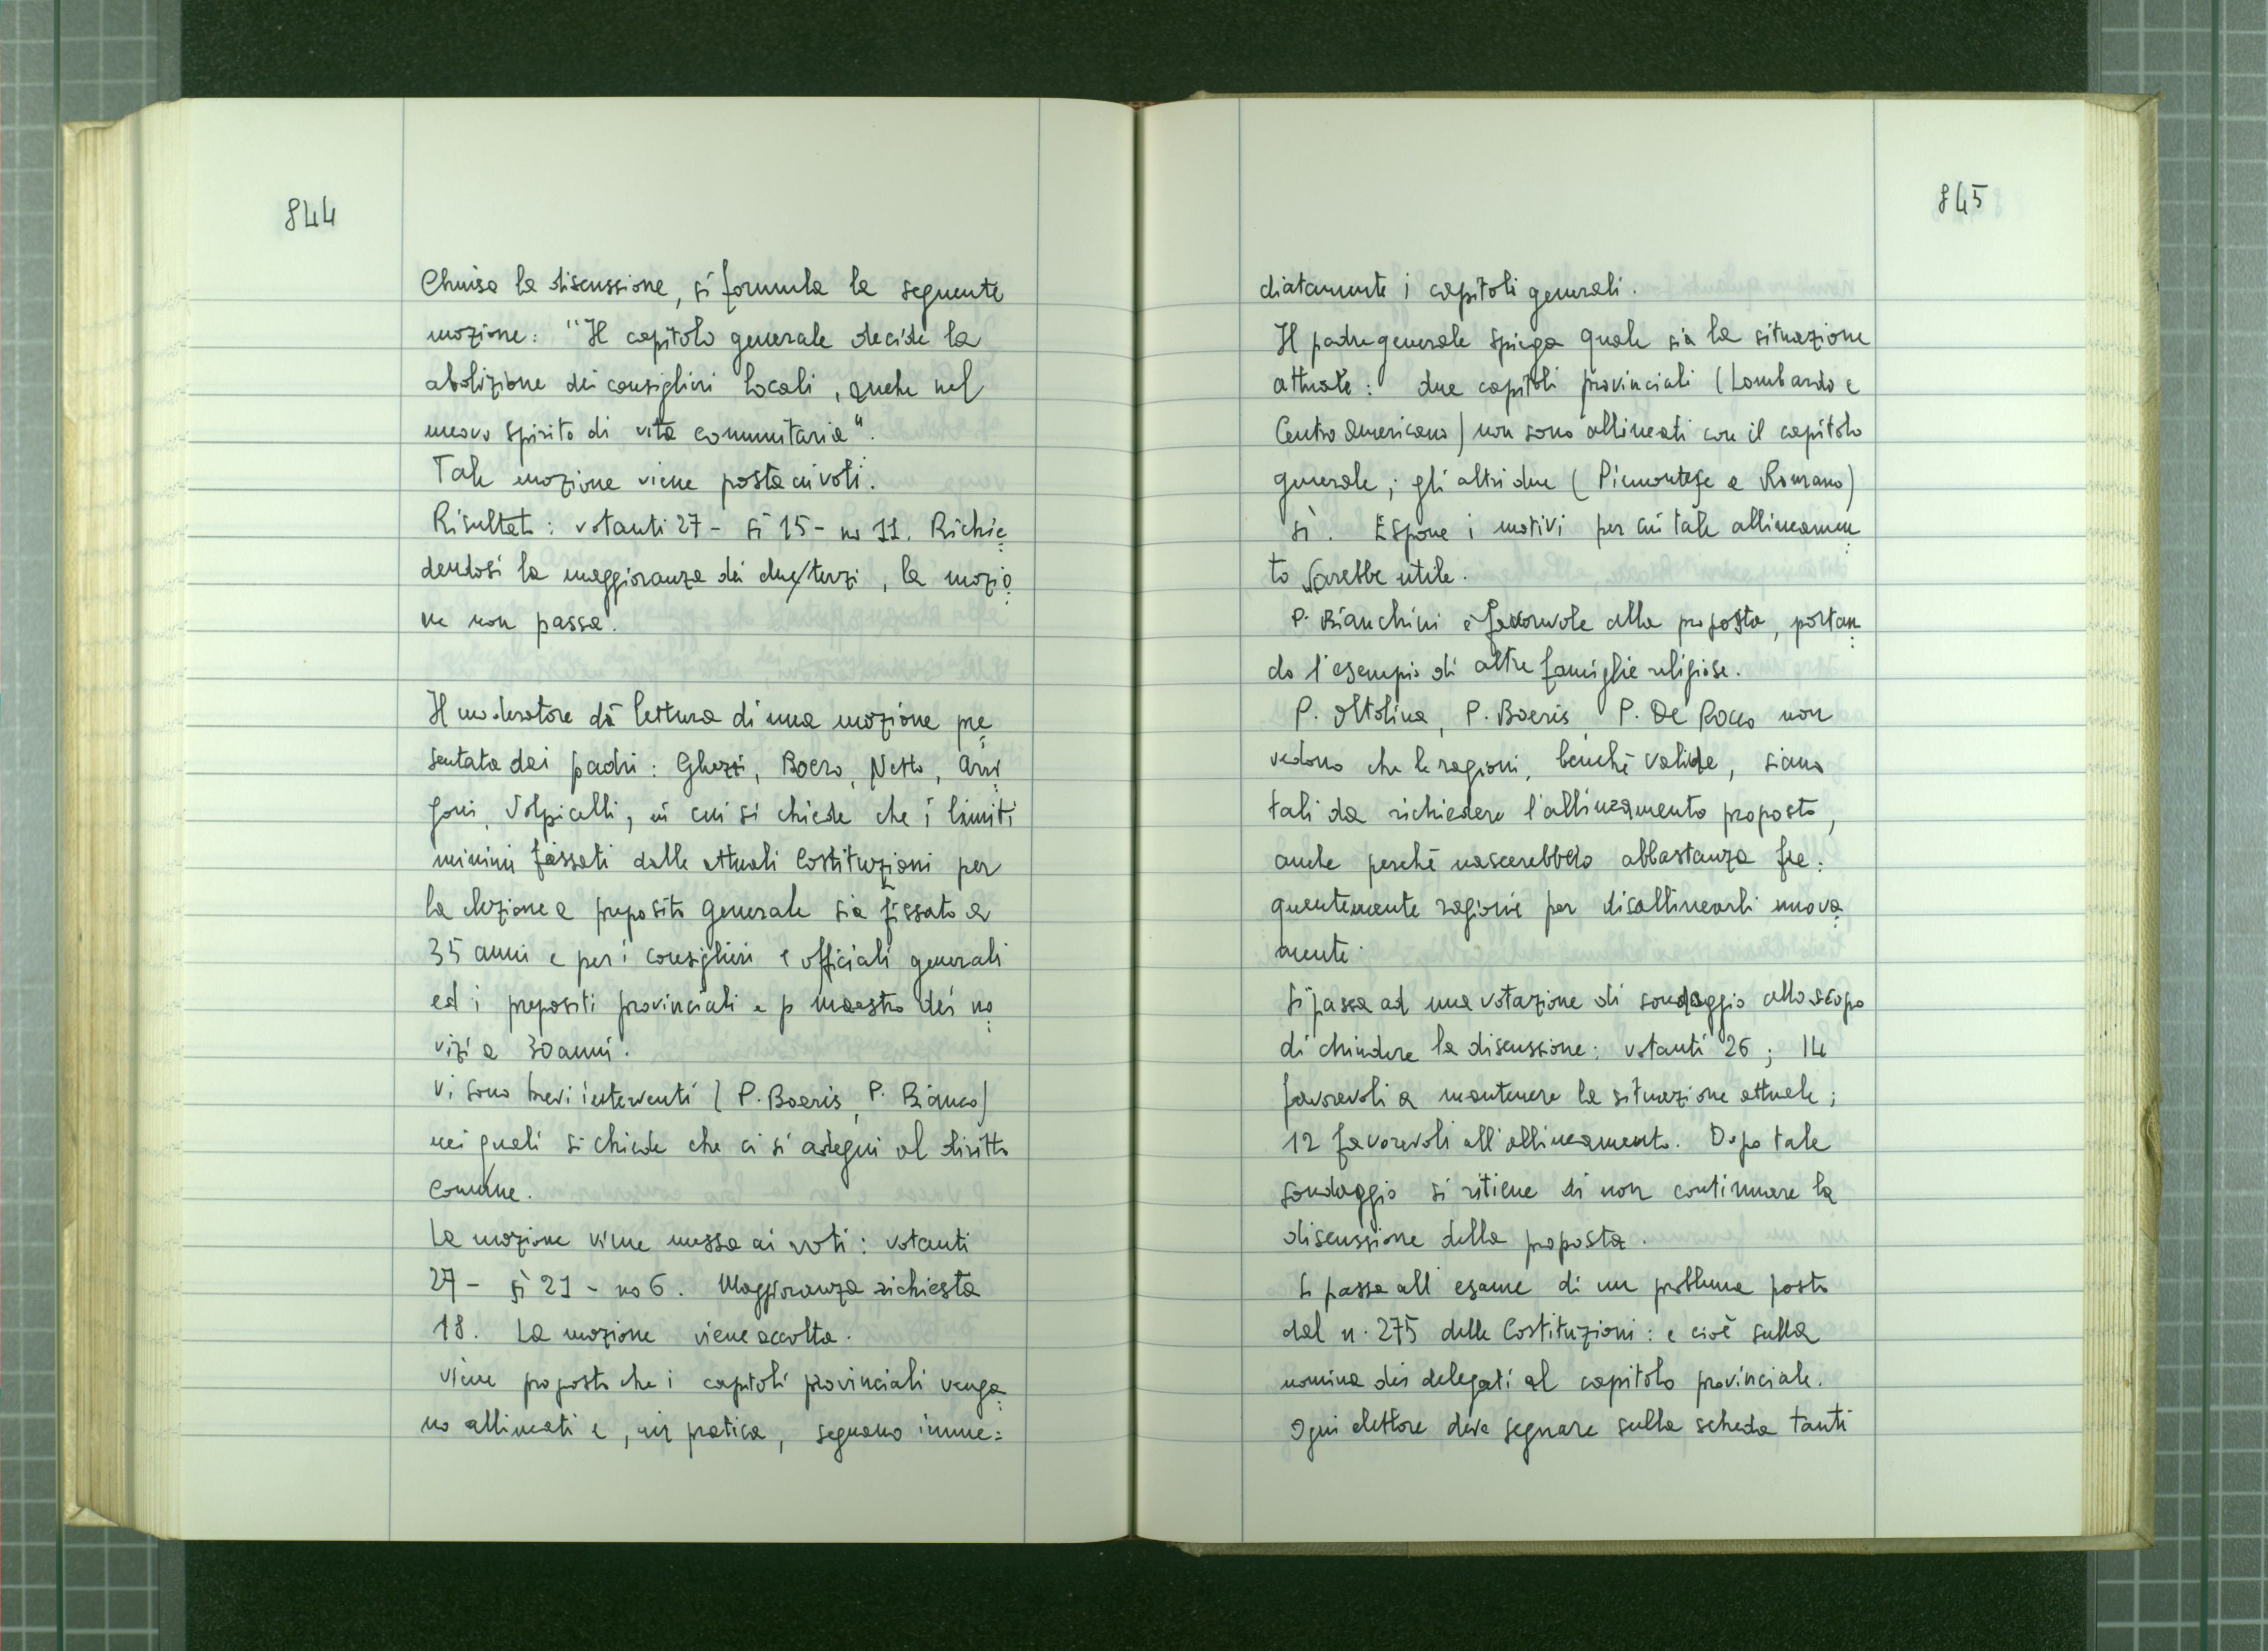 844
Chiusa la discussione, si formula la seguente
mozione: "Il capitolo generale decide la
abolizione dei consiglieri locali, anche nel
nuovo spirito di vita comunitaria".
Tale mozione viene posta ai voti.
Risultato: votanti 27 - sì 15 - no 11. Richie=
dendosi la maggioranza dei due/terzi, la mozio=
ne non passa.
Il moderatore dà lettura di una mozione pre=
sentata dai padri: Ghezzi, Boero, Netto, Arri=
goni, Volpicelli, in cui si chiede che i limiti
minimi fissati dalle attuali Costituzioni per
la elezione a preposito generale sia fissato a
35 anni e per i consiglieri e officiali generali
ed i prepositi provinciali e p maestro dei no=
vizi a 30 anni.
Vi sono brevi interventi (P. Boeris, P. Bianco)
nei quali si chiede che ci si adegui al diritto
comune.
La mozione viene messa ai voti: votanti
27 - sì 21 - no 6. Maggioranza richiesta
18. La mozione viene accolta.
Viene proposto che i capitoli provinciali venga=
no allineati e, in pratica, seguano imme=
845
diatamente i capitoli generali.
Il padre generale spiega quale sia la situazione
attuale: due capitoli provinciali (Lombardo e
Centro Americano) non sono allineati con il capitolo
generale; gli altri due (Piemontese e Romano)
sì. Espone i motivi per cui tale allineamen=
to sarebbe utile.
P. Bianchini è favorevole alla proposta, portan=
do l'esempio di altre famiglie religiose.
P. Oltolina, P. Boeris, P. De Rocco non
vedono che le ragioni, benché valide, siano
tali da richiedere l'allineamento proposto,
anche perché nascerebbero abbastanza fre=
quentemente ragioni per disallinearli nuova=
mente.
Si passa ad una votazione di sondaggio allo scopo
di chiudere la discussione: votanti 26; 14
favorevoli a mantenere la situazione attuale;
12 favorevoli all'allineamento. Dopo tale
sondaggio si ritiene di non continuare la
discussione della proposta.
Si passa all'esame di un problema posto
dal n. 275 delle Costituzioni: e cioè sulla
nomina dei delegati al capitolo provinciale.
Ogni elettore deve segnare sulla scheda tanti